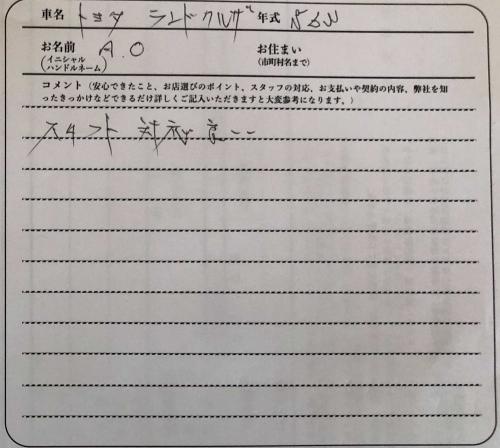 車名 トヨタ ランドクルザー 年式
お名前 A.O お住まい
(イニシャル ハンドルネーム) (市町村名まで)
コメント(安心できたこと、お店選びのポイント、スタッフの対応、お支払いや契約の内容、弊社を知
ったきっかけなどできるだけ詳しくご記入いただきますと大変参考になります。)
対応